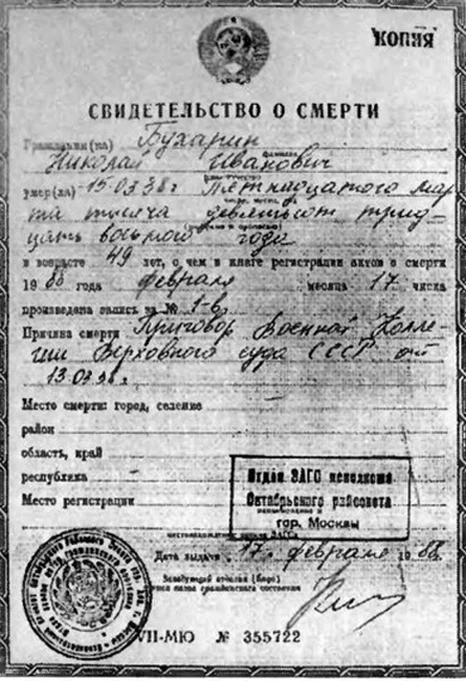 КОПИЯ
СВИДЕТЕЛЬСТВО О СМЕРТИ
Гражданин(ка) Бухарин
Николай Иванович
умер(ла) 15.03.38г Пятнадцатого мар
та тысяча девятьсот трид
цать восьмого года
в возрасте 49 лет, о чем в книге регистрации актов о смерти
19 88 года февраля месяца 17 числа
произведена запись за № 1-в
Причина смерти Приговор Военной Колле
гии Верховного суда СССР от
13.03.38г.
Место смерти: город, селение
район
область, край
республика
Место регистрации
Отдел ЗАГС исполкома
Октябрьского райсовета
гор. Москвы
Дата выдачи 17. февраля 19 88г.
Заведующий отделом (бюро)
записи актов гражданского состояния
VII-МЮ № 355722